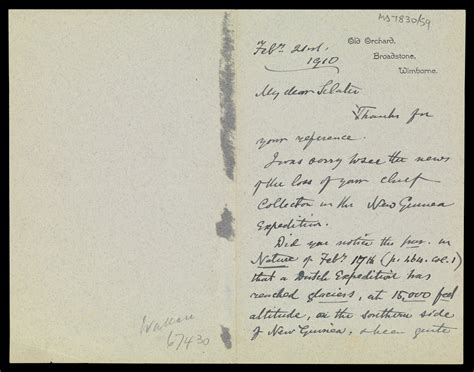 MS7830/59
Old Orchard,
Broadstone,
Wimborne.
Feby. 21st.
1910
My dear Sclater
Thanks for
your reference.
I was sorry to see the news
of the loss of your chief
Collector in the New Guinea
Expedition.
Did you notice the in
Nature of Feby. 17th (p. 464. col. 1)
that a Dutch Expedition has
reached glaciers, at 15,000 feet
altitude, on the southern side
of New Guinea, & been quite
Wallace
67430